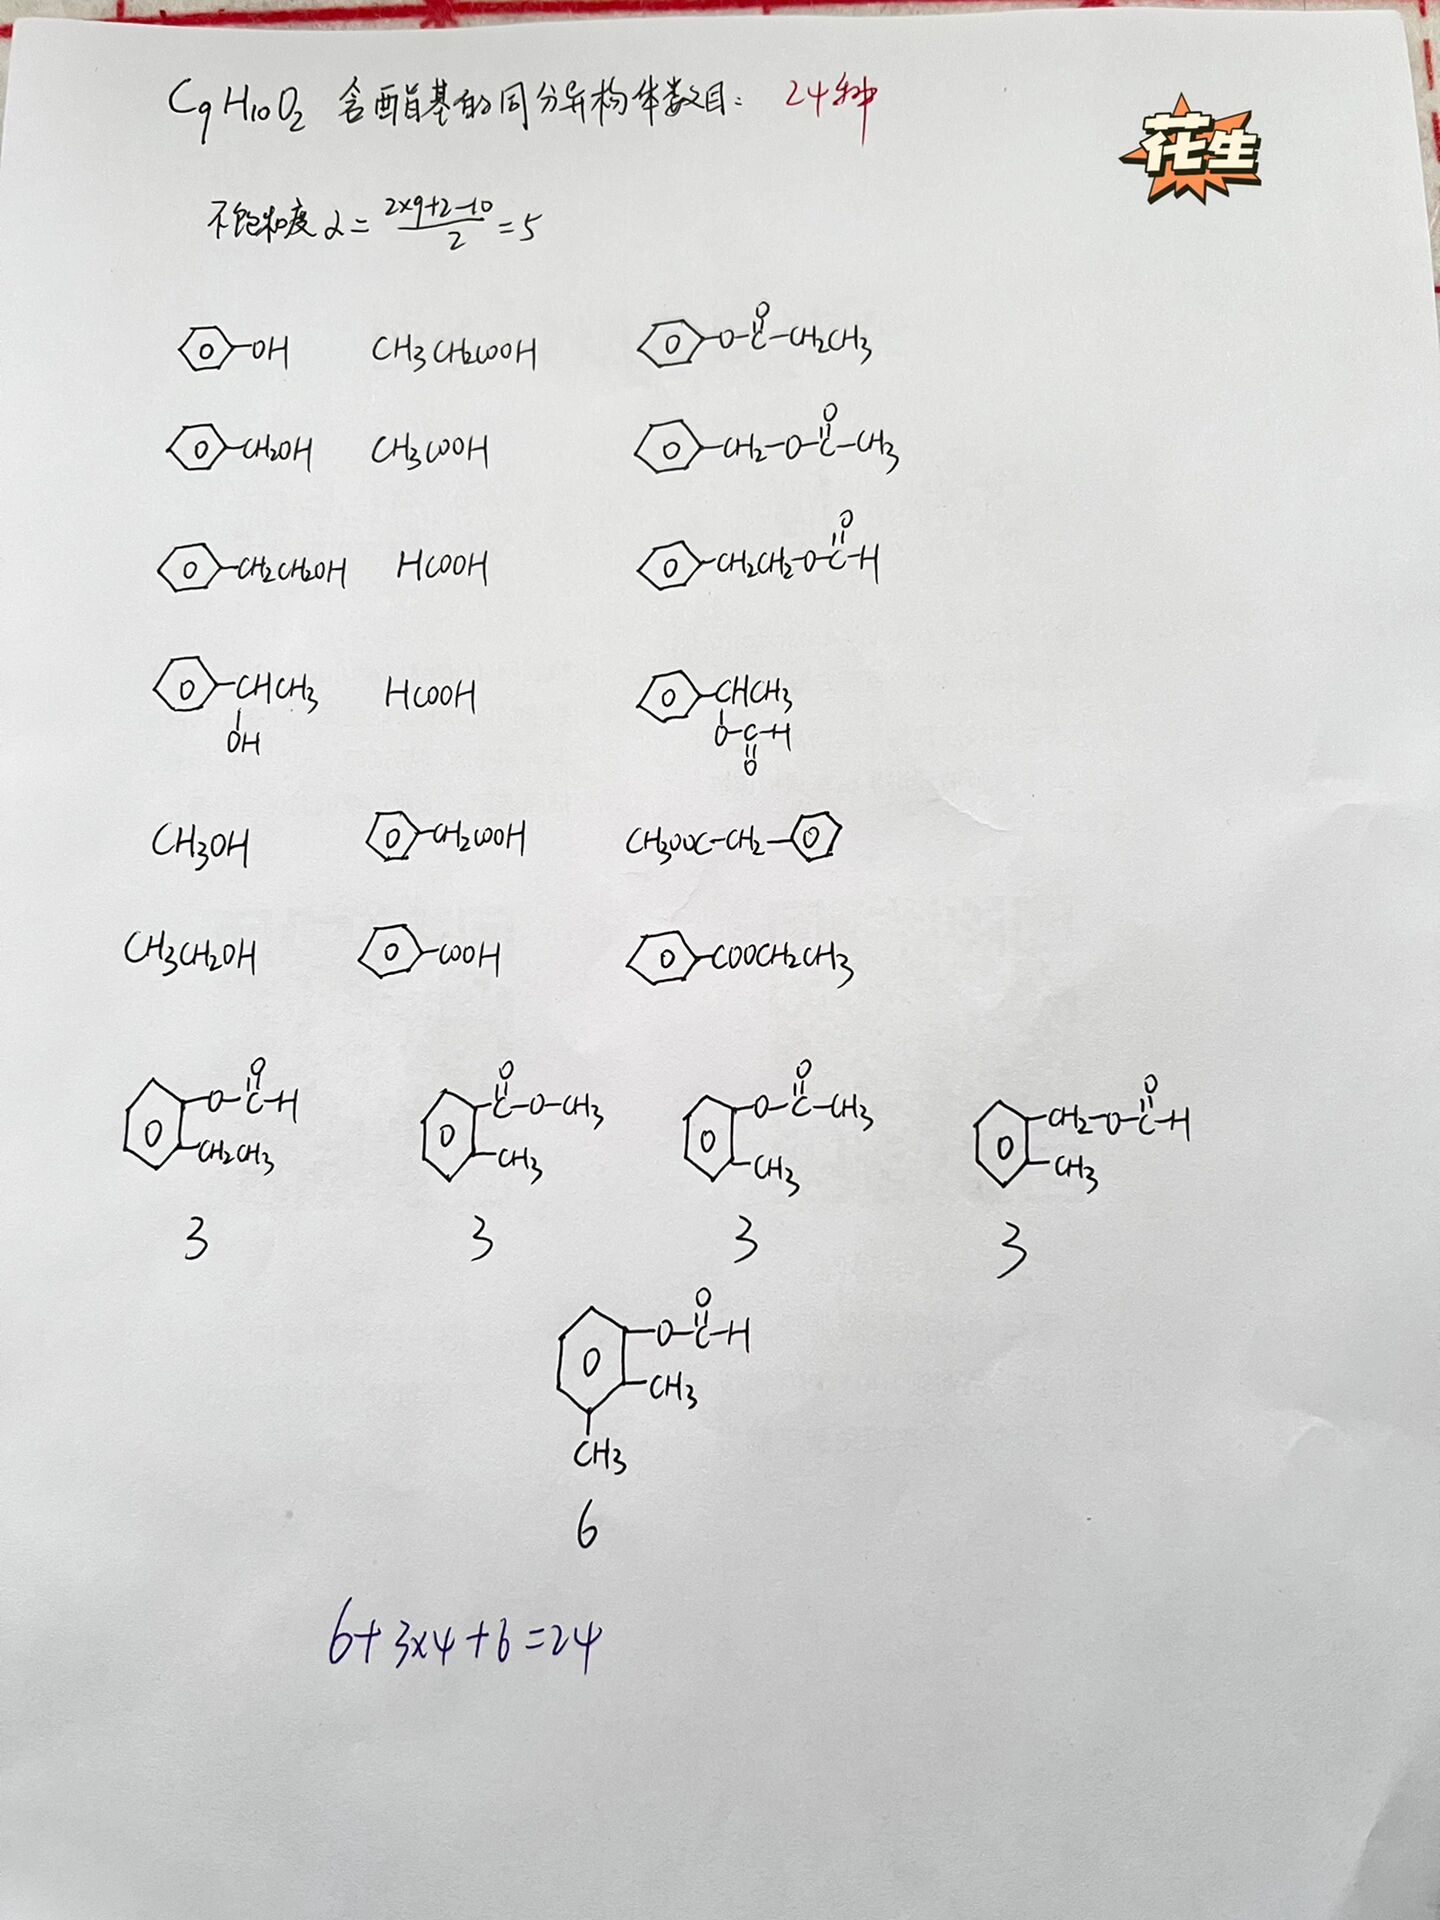 C9H10O2 含酯基的同分异构体数目: 24种
花生
不饱和度 α = (2×9+2-10)/2 = 5
OH CH3CH2COOH O-C-CH2CH3 O
CH2OH CH3COOH CH2-O-C-CH3 O
CH2CH2OH HCOOH CH2CH2-O-C-H O
CHCH3 OH HCOOH CHCH3 O-C-H O
CH3OH CH2COOH CH3OOC-CH2
CH3CH2OH COOH COOCH2CH3
O-C-H O CH2CH3
C-O-CH3 O CH3
O-C-CH3 O CH3
CH2-O-C-H O CH3
3 3 3 3
O-C-H O
CH3
CH3
6
6+3×4+6=24